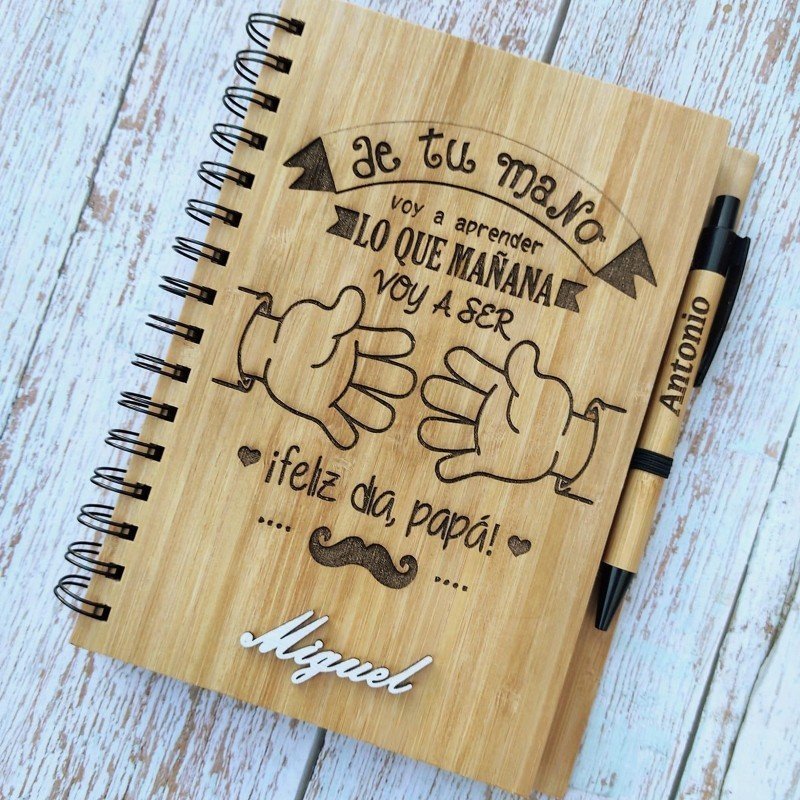 De tu maNo
voy a aprender
LO QUE MAÑANA
VOY A SER
¡feliz dia, papá!
Miguel
Antonio